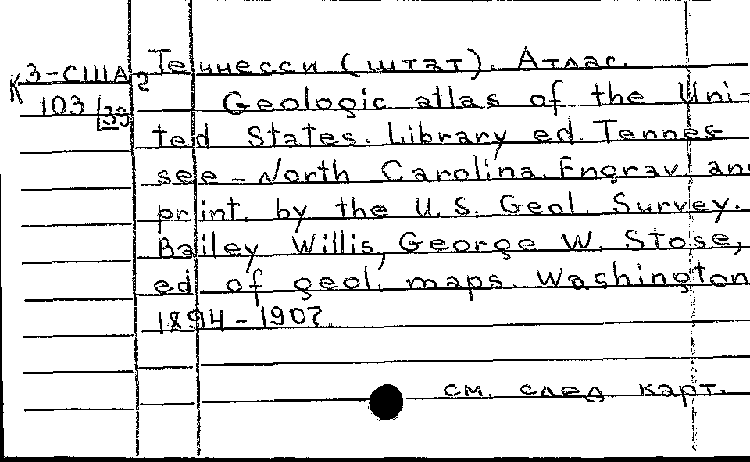 К 3-США 2
103/39
Теннесси (штат). Атлас.
Geologic atlas of the Uni-
ted States. Library ed. Tennes
see - North Carolina. Engrav. and
print. by the U.S. Geol. Survey.
Bailey Willis, George W. Stose,
ed of geol. maps. Washington
1894-1907.
см. след карт.